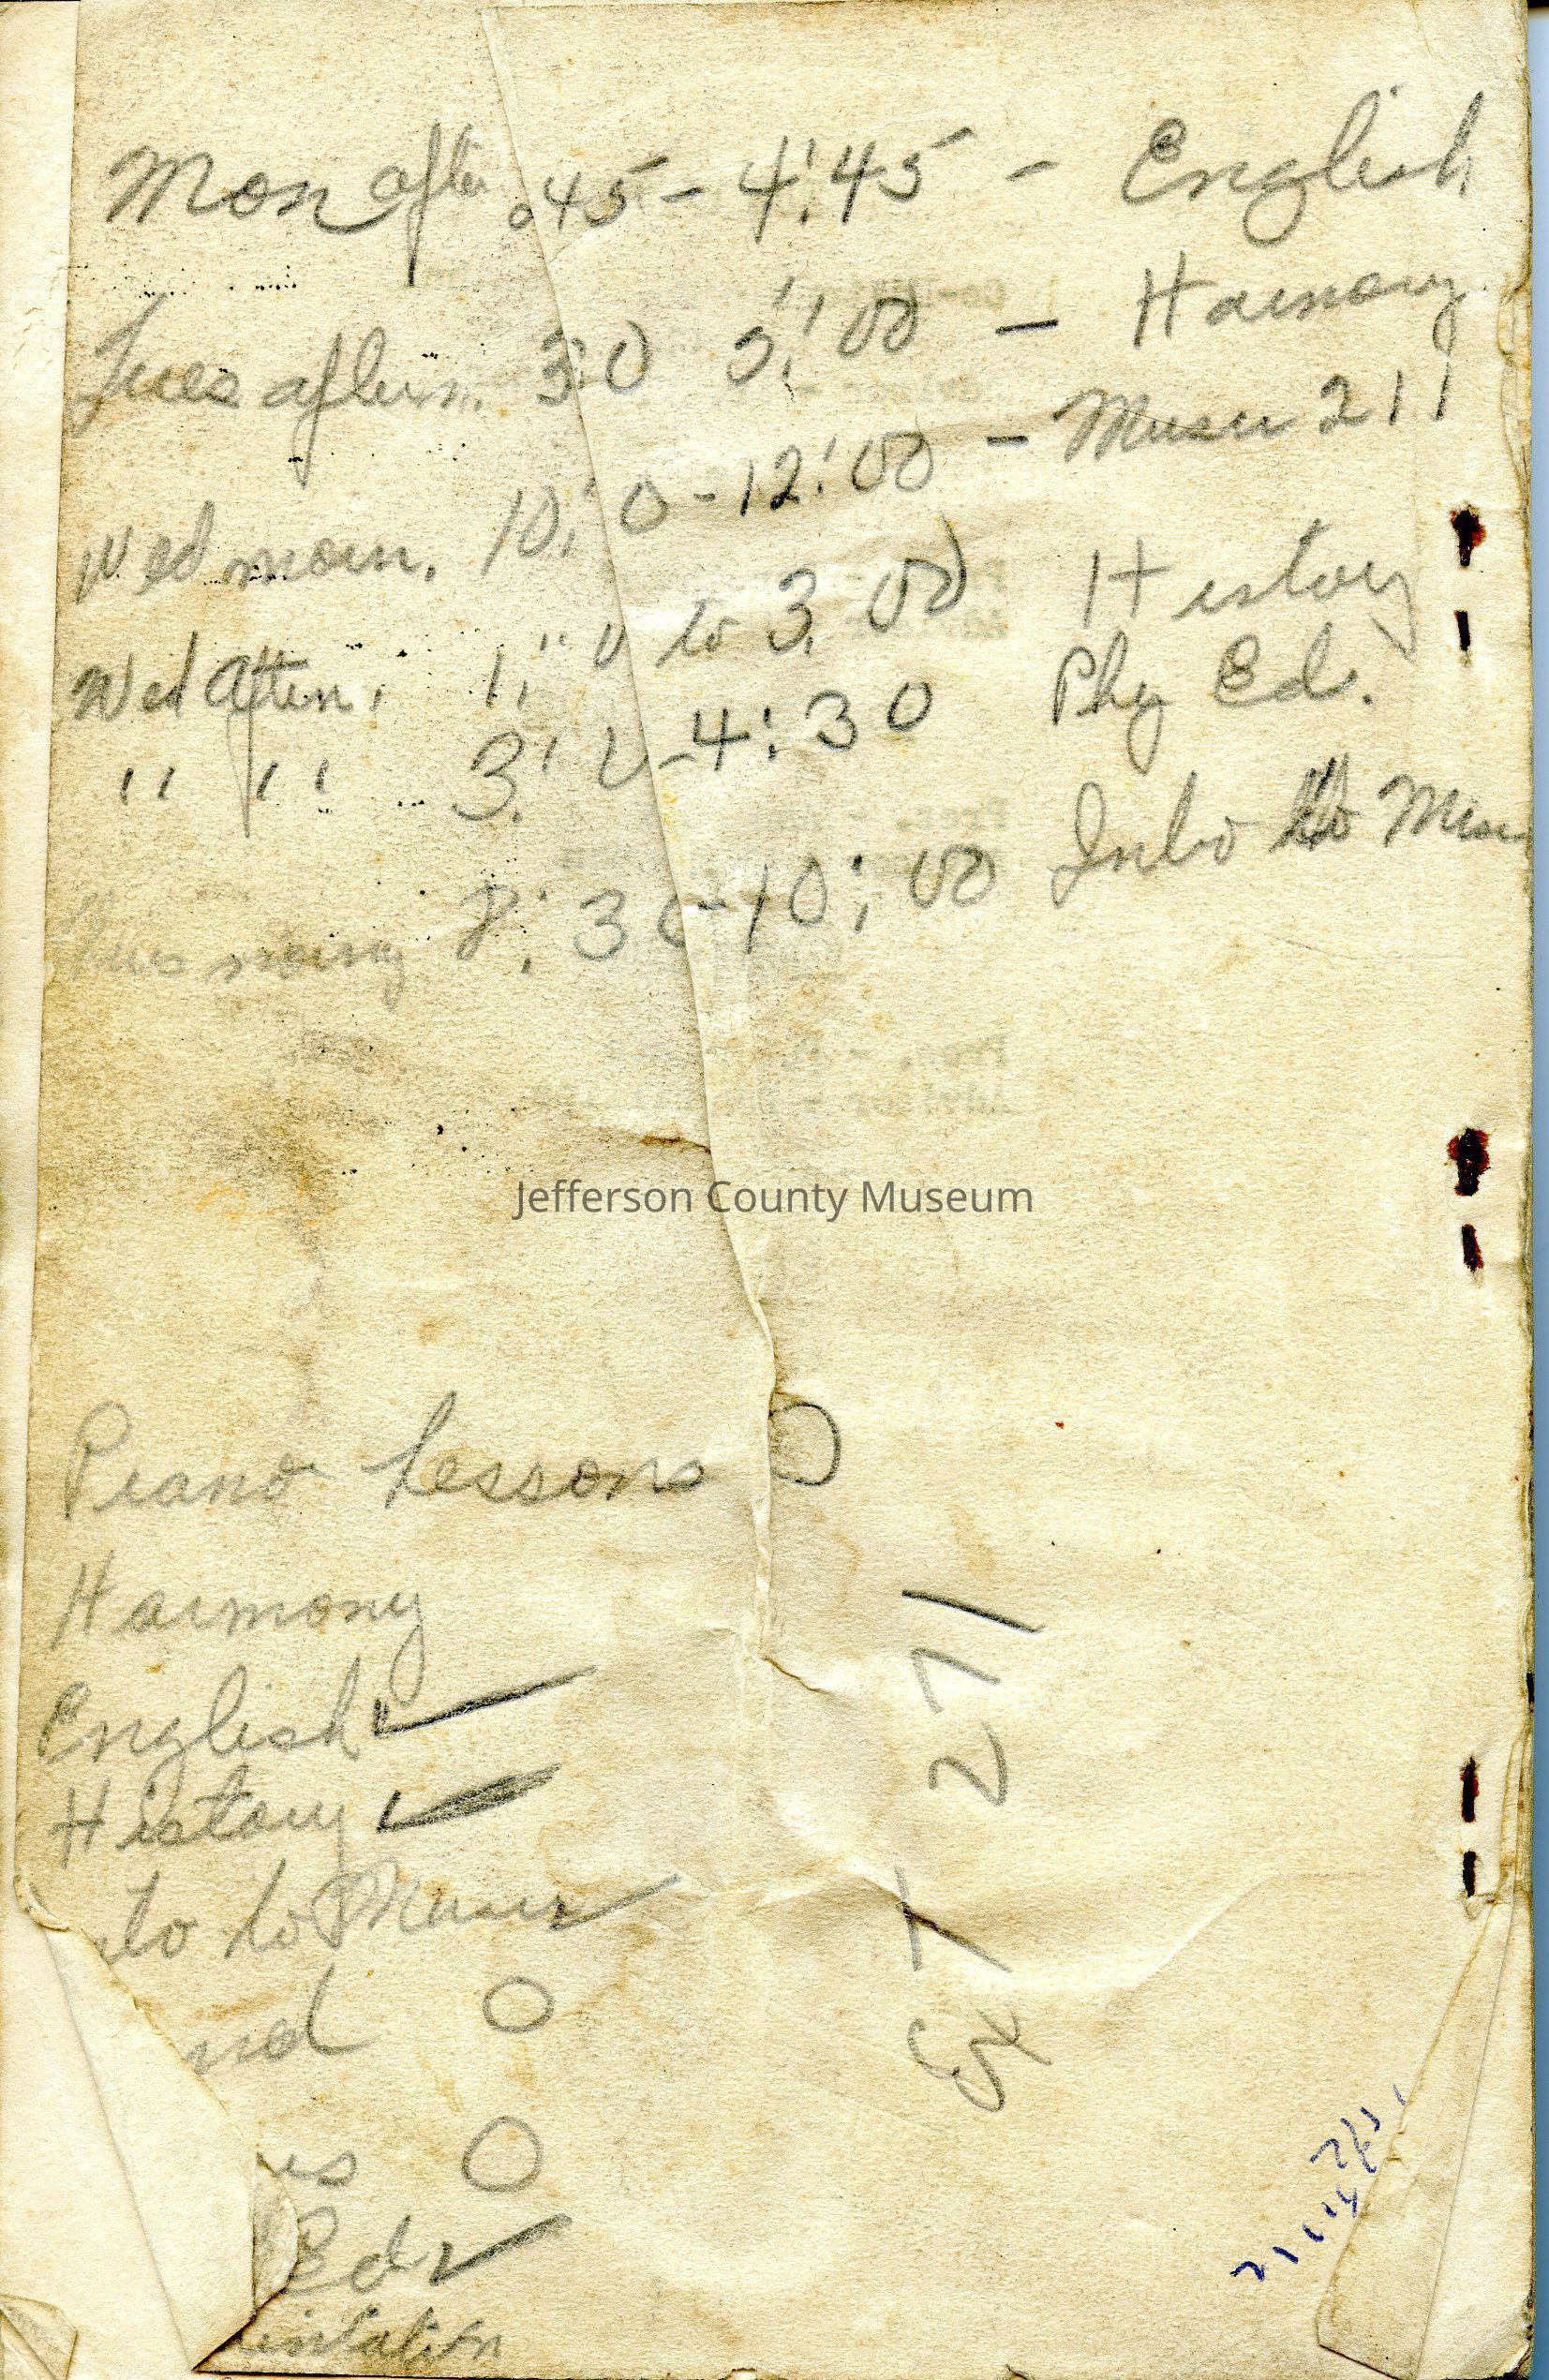 Mon after :45 - 4:45 - English
Tues aftern. 3:0 5:00 - Harmony
Wed morn. 10: 0 - 12:00 - Music 211
Wed Aftern. 1: to 3:00 History
" " 3: - 4:30 Phy Ed.
Tues morng 8:30 - 10:00 Intro to Music
Jefferson County Museum
Piano Lessons O
Harmony
English ✓
History ✓
to Music ✓
O
O
Ed ✓
271